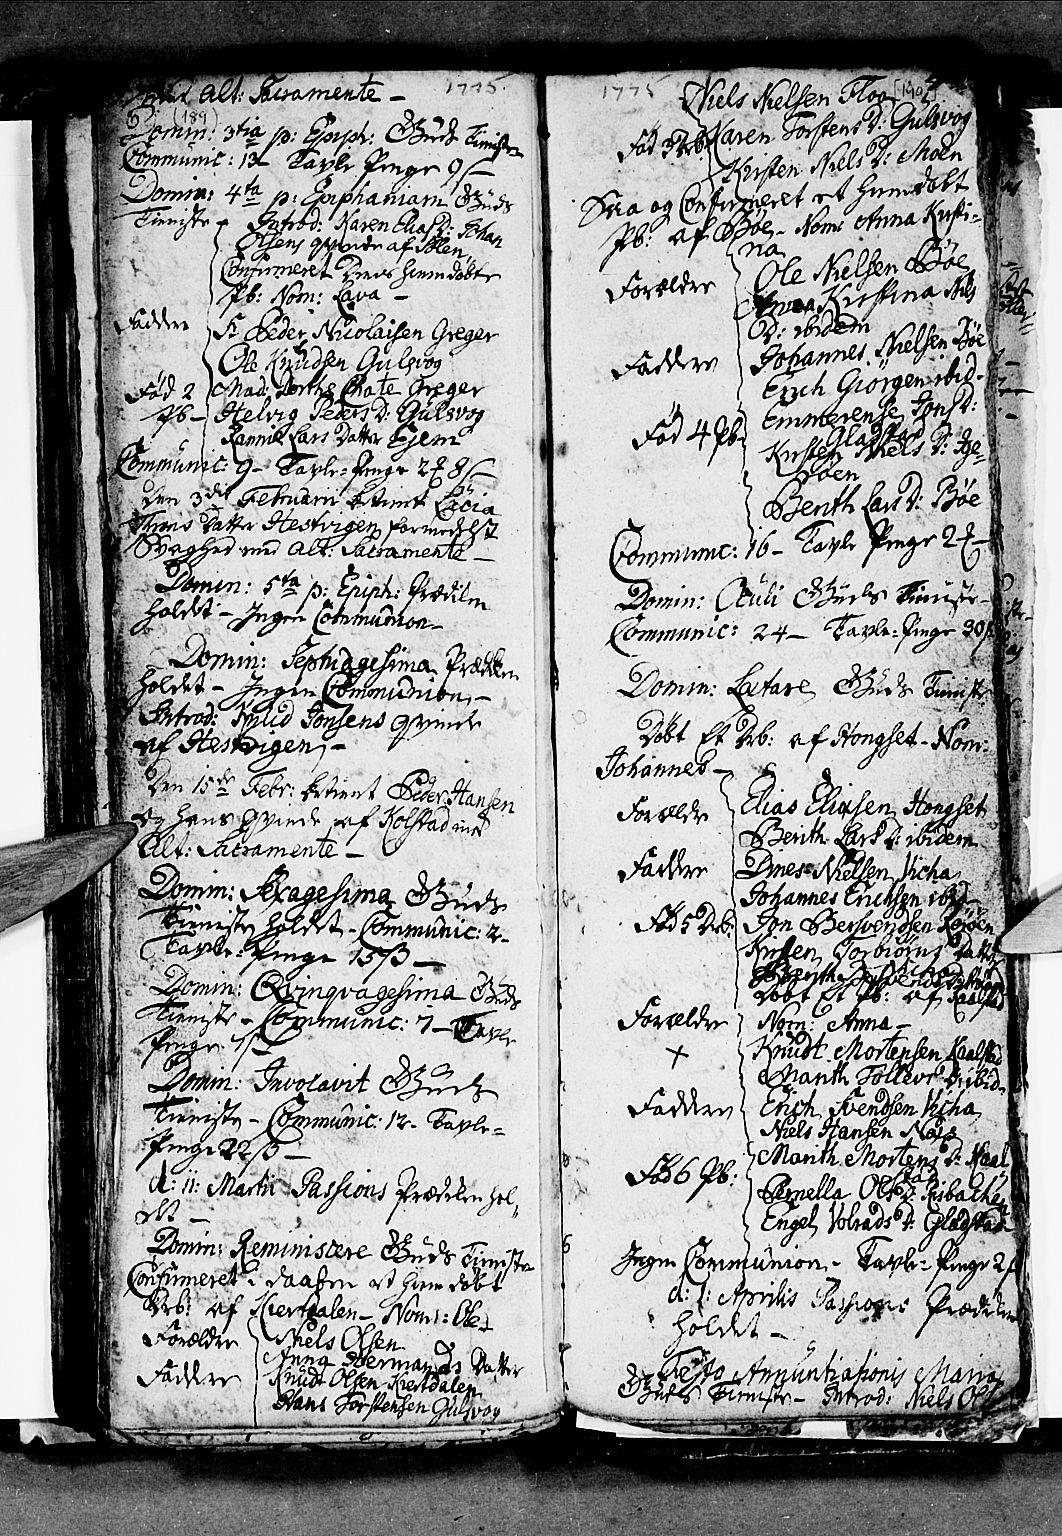 med Alt: Sacramente –
1775.
(189)
Domm: 3tia p: Epiph: Guds Tieniste
Communic: 13 – Tavle Penge 9 ß
Domin: 4ta p: Epiphaniam Guds
Tieniste – Introd: Karen Elias D: Johan
Olsens qvinde af Solen
Confirmeret Deres hiemdøbte
Pb: Nom: Lava –
Faddere
Hr Peder Nicolaisen Greger
Ole Knudsen Gulsvog
Fød 2
Mad: Dorthe Chate Greger
Pb –
Helvig Peders D: Gulsvog
Rannie Lars Datter Ejem
Communic: 9 – Tavle-Penge 2 8 ß
Den 3die Februarii betient Licia
Datter Hestvigen formedelst
Svaghed med Alt: Sacramente –
Domin: 5ta p: Epiph: Prædiken
holdet – Ingen Communion –
Domin: Septuagesima Prædiken
holdet – Ingen Communion –
Introd: Jonsens qvinde
af Hestvigen –
Den 15de Febr: betient Peder Hansen
og hans qvinde af Kolstad med
Alt: Sacramente –
Domin: Sexagesima Guds
Tieniste holdet – Communic: 2 –
Tavle-Penge 15 ß –
Domin: Qvinqvagesima Guds
Tieniste – Communic: 7 – Tavle
Penge
Domin: Invocavit Guds
Tieniste – Communic: 12 – Tavle-
Penge 22 ß –
d: 11: Martii Passions Prædiken hol-
det –
Domin: Reminiscere Guds Tieniste
Confirmeret i daaben et hiemdøbt
Drb: af Kiertdalen – Nom: Ole
Forældre
Niels Olsen
Anna Hermands Datter
Faddere
Knudt Olsen Kiertdalen
Hans Torstensen Gulsvog
1775
(190)
Niels Nielsen Floa
Fød 3 Drb:
Karen Torstens D: Gulsvog
Kirsten Niels D: Moen
Saa og Confirmeret et hiemdøbt
Pb: af Bøe – Nom: Anna Kirsti-
na
Forældre
Ole Nielsen Bøe
Anna Kirstina Niels
D: ibidem
Faddere
Johannes Nielsen Bøe
Erich Giørgen ibid –
Fød 4 Pb –
Emmerense Jons D:
Gladstad
Kirsten Niels D: Ige-
røen
Berith Lars D: Bøe
Communic: 16 – Tavle Penge 2
Domin: Oculi Guds Tieniste –
Communic: 24 – Tavle-Penge 30 ß
Domin: Lætare Guds Tieniste
Døbt Et Drb: af Hongset – Nom:
Johannes –
Forældre
Elias Eliasen Hongset
Berith Lars D: ibidem
Faddere
Dines Nielsen Vicha
Johannes Erichsen ibid
Fød 5 Drb:
Jon Bersvendsen Rørøen
Kirsten Torbiørns Datter
Døbt Et Pb: af Kaalstad
Nom: Anna –
Forældre
+
Knudt Mortensen Kaalstad
Marith Tollevs D: ibid –
Faddere
Erich Svendsen Vicha
Niels Hansen Næs
Fød 6 Pb:
Marith Mortens D: Kaal
stad
Pernella Ols D: Risbachen
Engel Volrads D: Gladstad –
Ingen Communion – Tavle-Penge 2
d: 1: Aprilis Passions Prædiken
holdet –
Festo Annuntiationis Mariæ
Guds Tieniste – Introd: Niels Ols